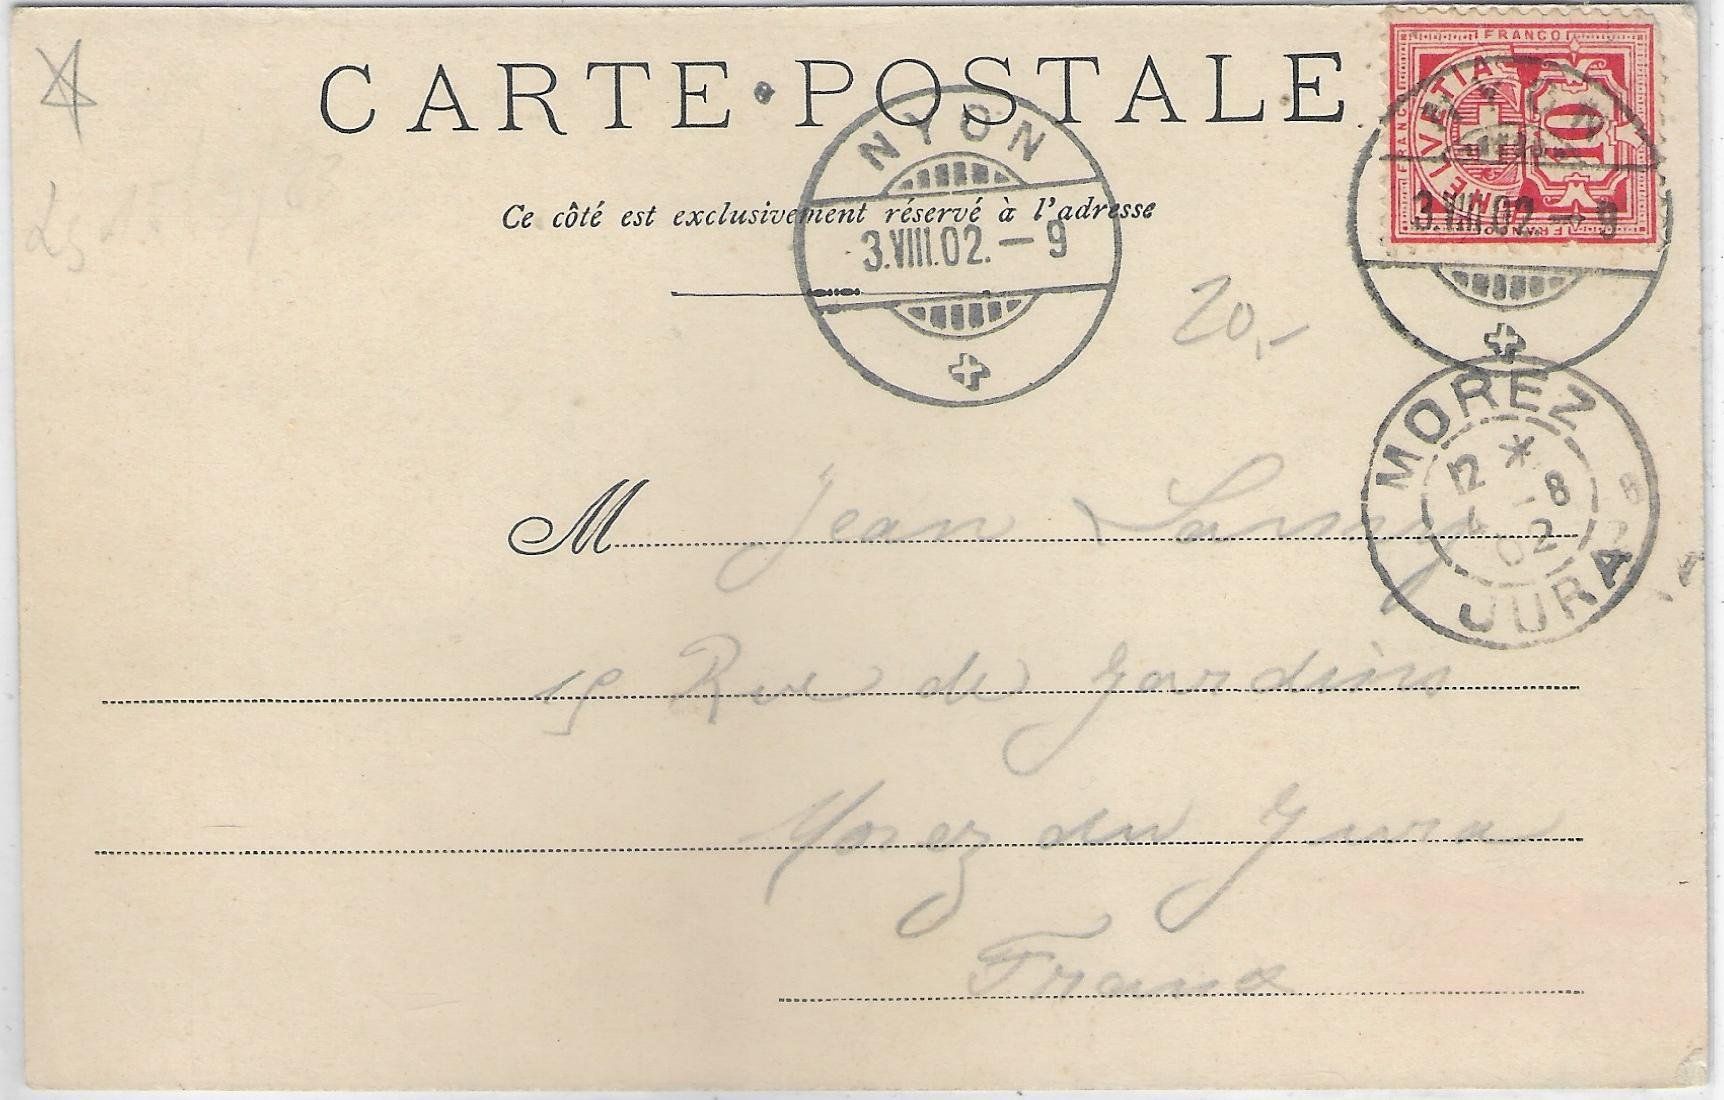 CARTE POSTALE
FRANCO
HELVETIA
10
NYON
Ce côté est exclusivement réservé à l'adresse
3.VIII.02.–9
3.VIII.02–9
20,-
MOREZ
12 * 8
4 02
JURA
M Jean Lamy
15 Rue de Jardins
Morez du Jura
France